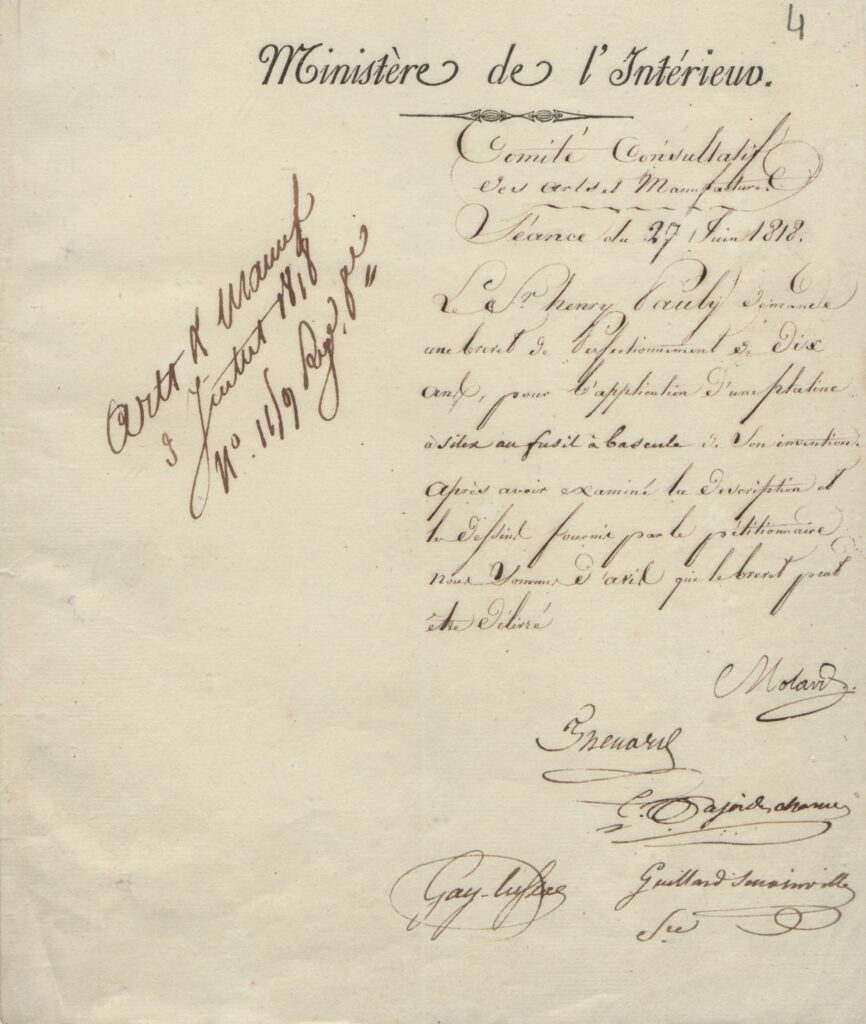 4
Ministère de l'Intérieur.
Comité Consultatif
des arts et Manufactures
Séance du 27 Juin 1818.
Arts & Manuf
3 Juillet 1818
N°. 1159
Le Sr henry Pauly demande
un brevet de Perfectionnement de Dix
ans, pour l'application d'une platine
à silex au fusil à bascule de son invention.
après avoir examiné la description et
les dessins fournis par le pétitionnaire
nous sommes d'avis que le brevet peut
être délivré
Molard.
Thenard
Gay-lussac
Guillard Senainville
Sre